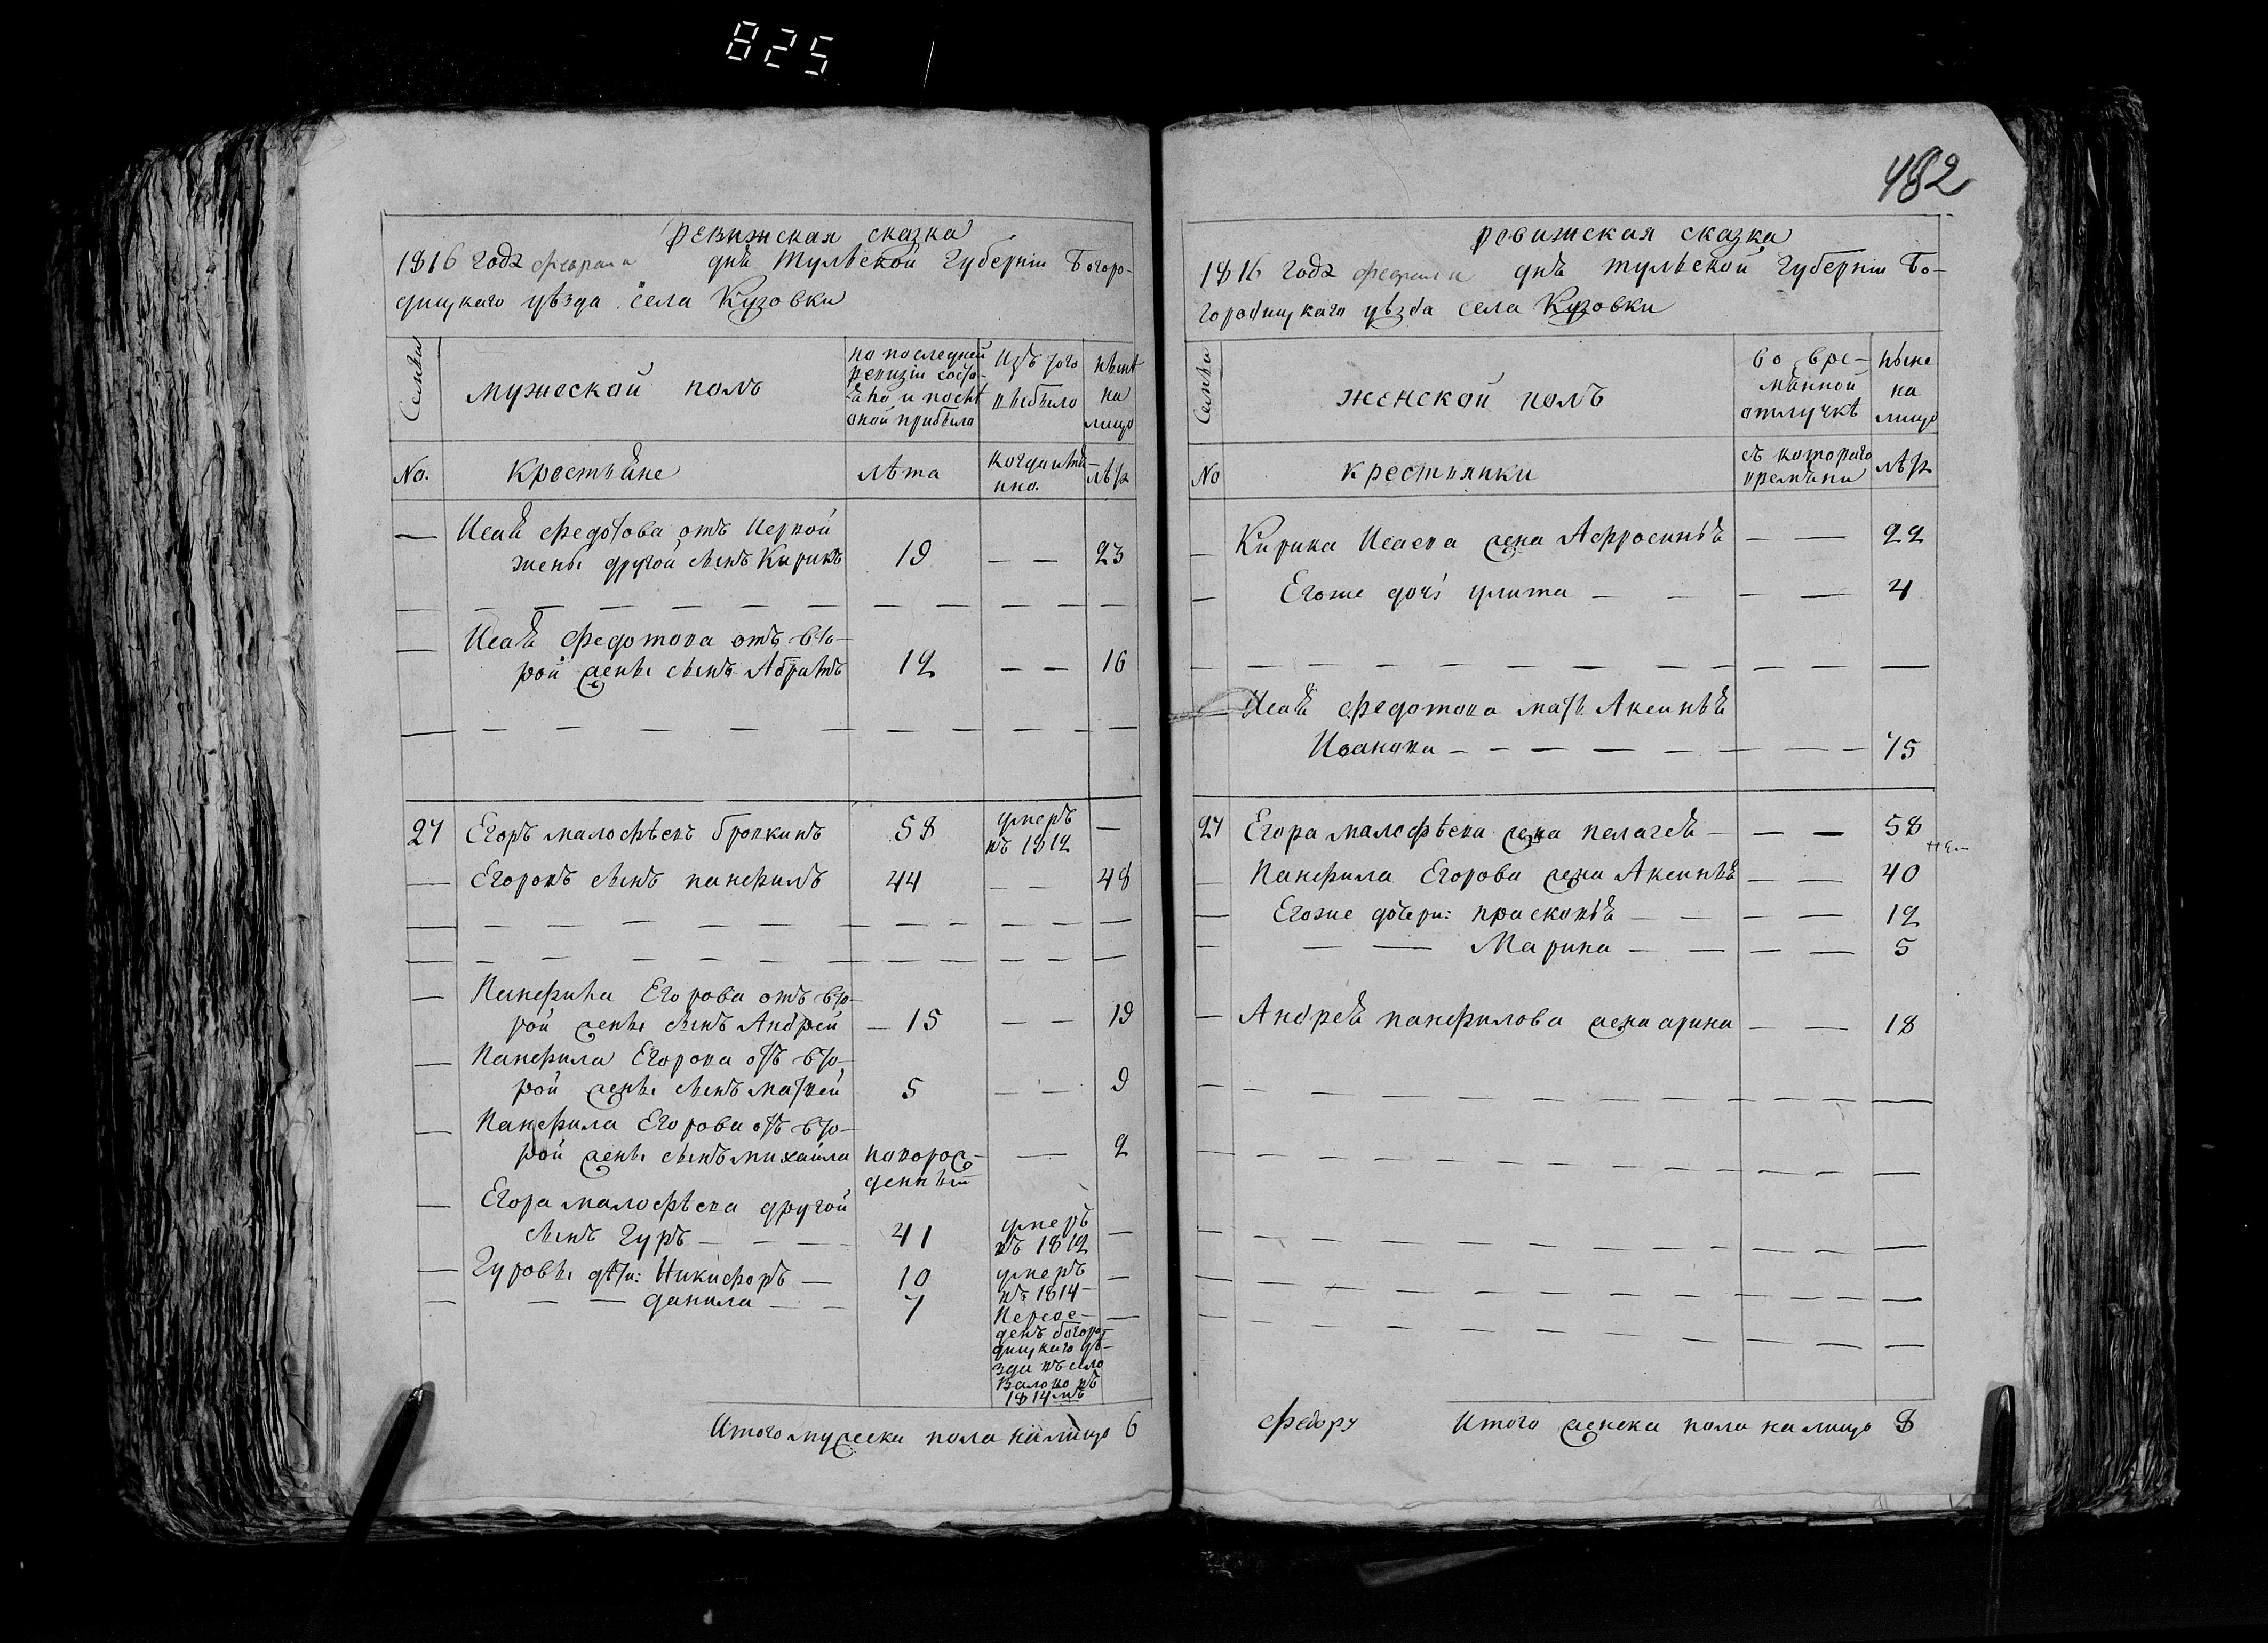 825
ревижская сказка
1816 года февраля дня Тульской Губернии Богоро-
дицкаго уѣзда села Кузовки
Семьи
мужеской полъ
по последней
ревизіи состо-
яло и послѣ
оной прибыло
Изъ того
выбыло
нынѣ
на
лицо
No.
крестьяне
лѣта
когда имян-
но.
лѣта
Исая Федотова отъ первой
жены другой сынъ Кирикъ 19 23
Исая Федотова отъ вто-
рой жены сынъ Абрамъ 12 16
27 Егоръ малофѣевъ бропкинъ 58 умеръ
въ 1812
Егоровъ сынъ панфилъ 44 48
Панфила Егорова отъ вто-
рой жены сынъ Андрей 15 19
Панфила Егорова отъ вто-
рой жены сынъ матвей 5 9
Панфила Егорова отъ вто-
рой жены сынъ михаила новорож-
денный 2
Егора малофѣева другой
сынъ Гуръ 41 умеръ
въ 1812
Гуровы дѣти: Никифоръ 10 умеръ
въ 1814
данила 7 Переве-
денъ богоро-
дицкаго уѣ-
зда въ село
1814мъ
Итого мужеска пола налицо 6
482
ревижская сказка
1816 года февраля дня тульской Губернии Бо-
городицкаго уѣзда села Кузовки
Семьи
женской полъ
во вре-
мянной
отлучкѣ
ныне
на
лицо
No
крестьянки
съ котораго
времяни
лѣта
Кирика Исаева жена Афросинья 22
Егоже дочь улита 4
Исая Федотова мать Аксинья
Иванова 75
27 Егора малофѣева жена пелагея 58
Панфила Егорова жена Аксинья 40
Егоже дочери: прасковья 12
Марина 5
Андрея панфилова жена арина 18
Федору Итого женска пола налицо 8